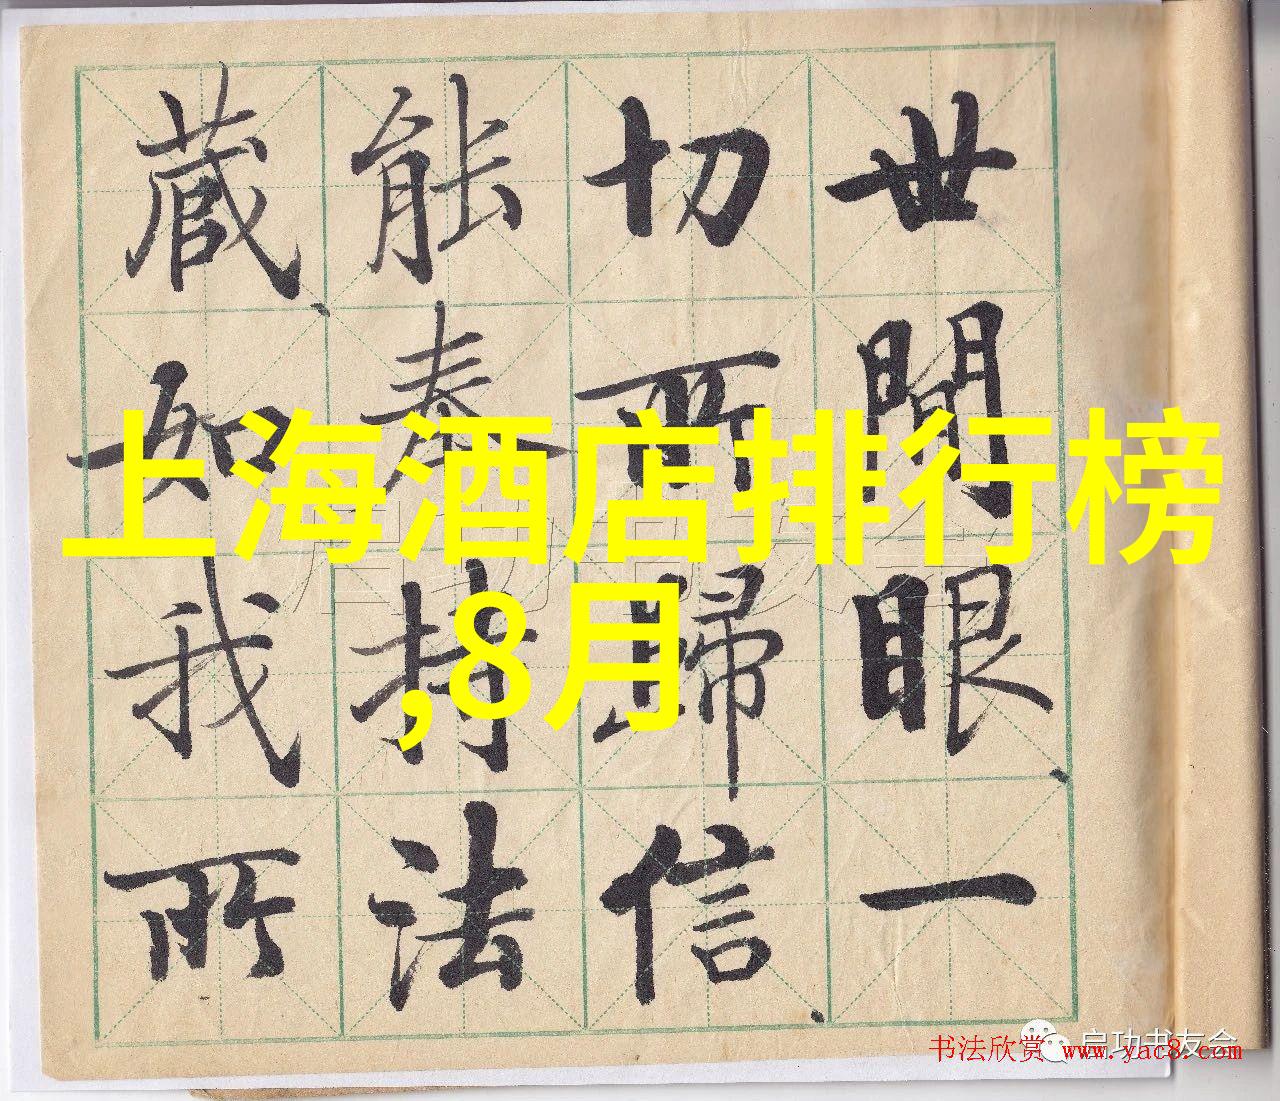 上海酒店排行榜
,8月
世間眼一
切所歸信
能奉持法
藏如我所
启功书友会
书法欣赏 www.yac8.com
启功书友会